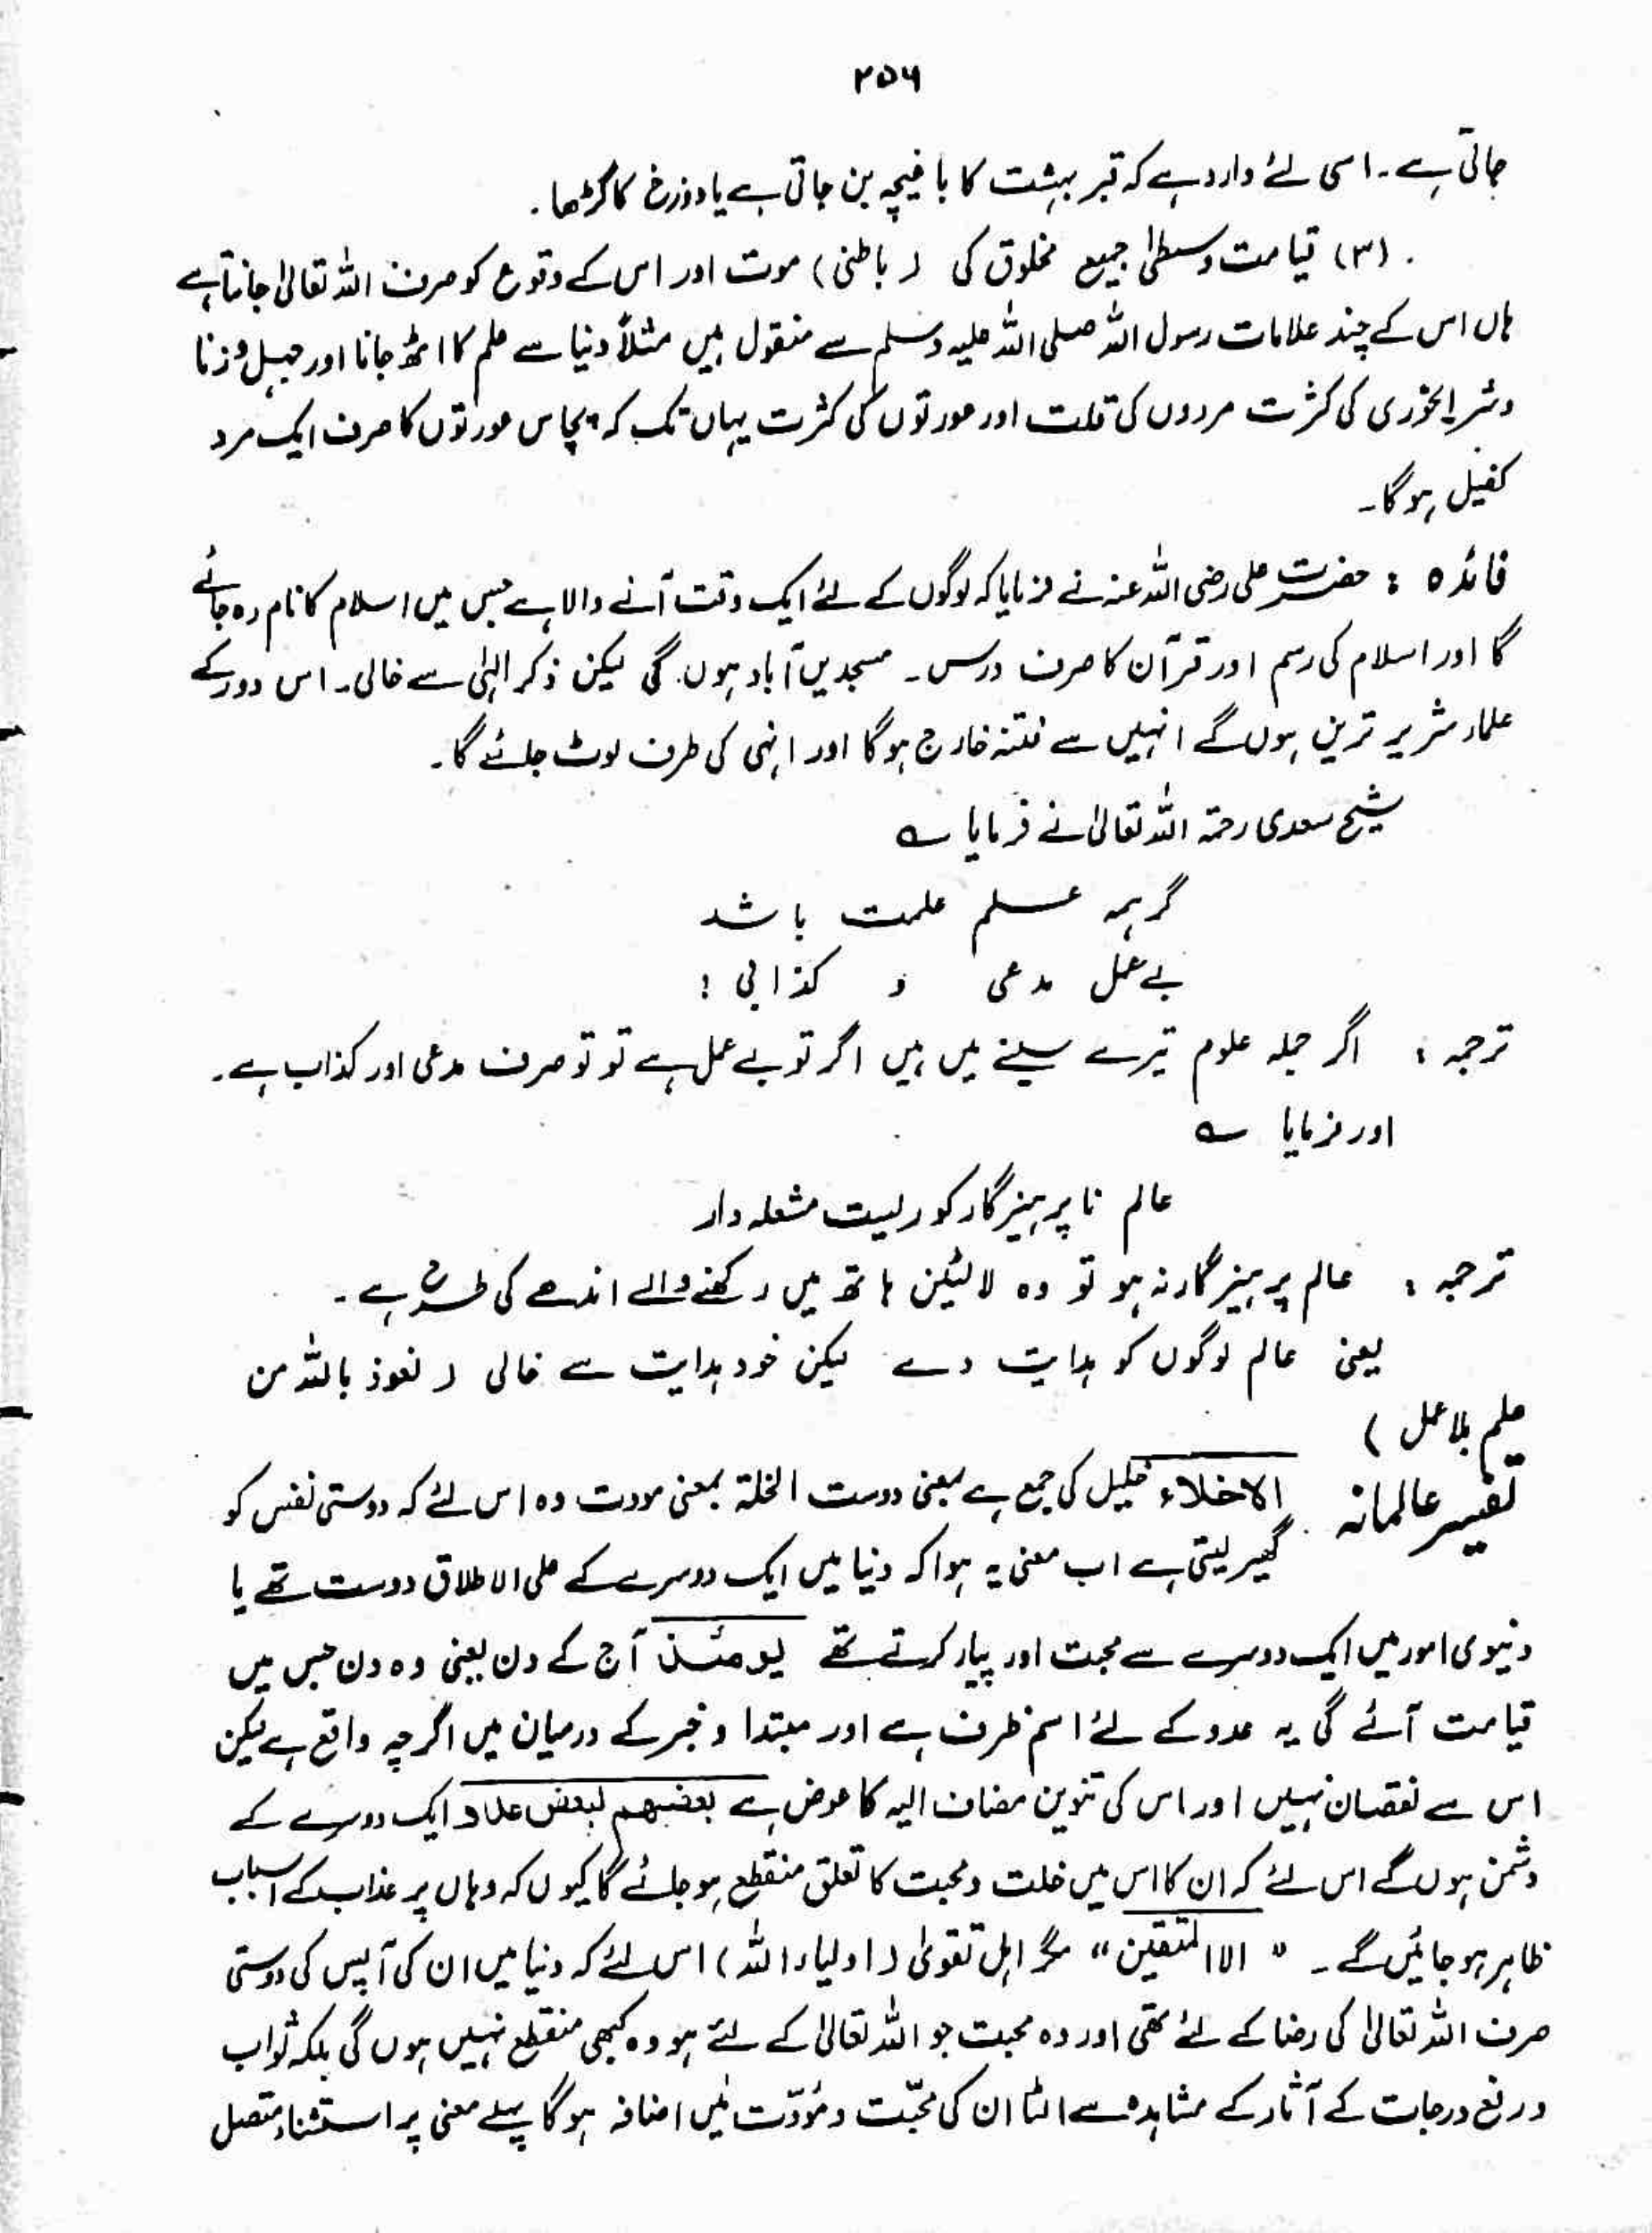 ۲۵۶
جاتی ہے۔ اسی لئے وارد ہے کہ قبر بہشت کا باغیچہ بن جاتی ہے یا دوزخ کا گڑھا۔
(۳) قیامت وسطیٰ جمیع مخلوق کی (باطنی) موت اور اس کے وقوع کو صرف اللہ تعالیٰ جانتا ہے
ہاں اس کے چند علامات رسول اللہ صلی اللہ علیہ وسلم سے منقول ہیں مثلاً دنیا سے علم کا اٹھ جانا اور جہل و زنا
وشرابخوری کی کثرت مردوں کی قلت اور عورتوں کی کثرت یہاں تک کہ پچاس عورتوں کا صرف ایک مرد
کفیل ہوگا۔
فائدہ : حضرت علی رضی اللہ عنہ نے فرمایا کہ لوگوں کے لئے ایک وقت آنے والا ہے جس میں اسلام کا نام رہ جائے
گا اور اسلام کی رسم اور قرآن کا صرف درس۔ مسجدیں آباد ہوں گی لیکن ذکر الہٰی سے خالی۔ اس دور کے
علماء شریر ترین ہوں گے انہیں سے فتنہ خارج ہوگا اور انہی کی طرف لوٹ جائے گا۔
شیخ سعدی رحمۃ اللہ تعالیٰ نے فرمایا ؎
گر ہمہ علم علمت باشد
بے عمل مدعی و کذابی !
ترجمہ : اگر جملہ علوم تیرے سینے میں ہیں اگر تو بے عمل ہے تو تو صرف مدعی اور کذاب ہے۔
اور فرمایا ؎
عالم ناپرہیزگار کوریست مشعلہ دار
ترجمہ : عالم پرہیزگار نہ ہو تو وہ لالٹین ہاتھ میں رکھنے والے اندھے کی طرح ہے۔
یعنی عالم لوگوں کو ہدایت دے لیکن خود ہدایت سے خالی (نعوذ باللہ من
علم بلا عمل)
تفسیر عالمانہ الاخلاء خلیل کی جمع ہے بمعنی دوست الخلۃ بمعنی مودت وہ اس لئے کہ دوستی نفس کو
گھیر لیتی ہے اب معنی یہ ہوا کہ دنیا میں ایک دوسرے کے علی الاطلاق دوست تھے یا
دنیوی امور میں ایک دوسرے سے محبت اور پیار کرتے تھے یومئذ آج کے دن یعنی وہ دن جس میں
قیامت آئے گی یہ عدو کے لئے اسم ظرف ہے اور مبتدا و خبر کے درمیان میں اگرچہ واقع ہے لیکن
اس سے نقصان نہیں اور اس کی تنوین مضاف الیہ کا عوض ہے بعضہم لبعض عدو ایک دوسرے کے
دشمن ہوں گے اس لئے کہ ان کا اس میں خلت و محبت کا تعلق منقطع ہو جائے گا کیوں کہ وہاں پر عذاب کے اسباب
ظاہر ہو جائیں گے۔ " الا المتقین " مگر اہل تقویٰ (اولیاء اللہ) اس لئے کہ دنیا میں ان کی آپس کی دوستی
صرف اللہ تعالیٰ کی رضا کے لئے تھی اور وہ محبت جو اللہ تعالیٰ کے لئے ہو وہ کبھی منقطع نہیں ہوں گی بلکہ ثواب
و رفع درجات کے آثار کے مشاہدہ سے الٹا ان کی محبّت و مُودّت میں اضافہ ہوگا پہلے معنی پر استثناء متصل